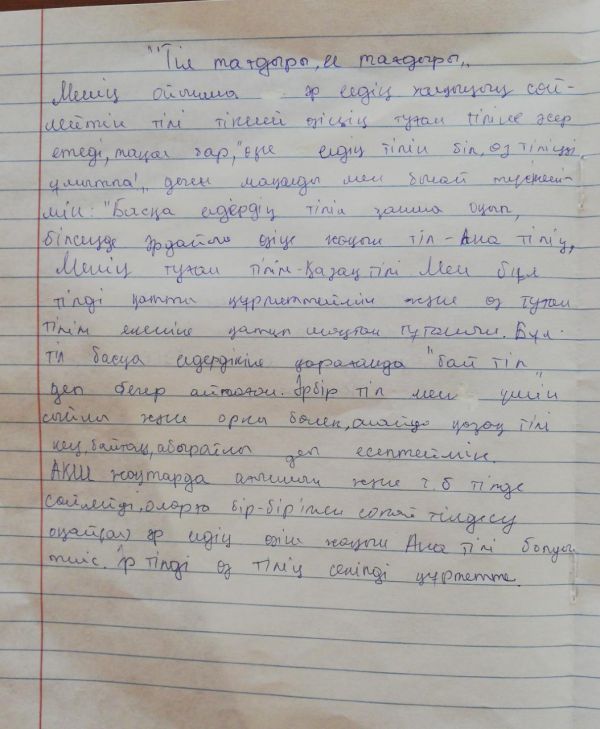 "Тіл тағдыры, ел тағдыры"
Менің ойымша әр елдің жақының сөй-
лейтін тілі тікелей өзінің туған тіліне әсер
етеді, мақал бар, "өзге елдің тілін біл, өз тіліңді
ұмытпа!" деген мақалды мен былай түсінемін-
мін: "Басқа елдердің тілін қанша оқып,
білсеңде әрдайым өзіңе жақын тіл - Ана тілің,
Менің туған тілім - Қазақ тілі Мен бұл
тілді қатты құрметтеймін және өз туған
тілім екеніне қатты мақтан тұтамын. Бұл
тіл басқа елдердікіне қарағанда "бай тіл"
деп бекер айтпаған. Әрбір тіл мен үшін
сыйлы және орны бөлек, алайда қазақ тілі
кең, байтақ, абыройлы деп есептеймін.
АҚШ жақтарда ағылшын және т.б тілде
сөйлейді, оларға бір-бірімен солай тілдесу
оңай(ғой) әр елдің өзіне жақын Ана тілі болуы
тиіс. Әр тілді өз тілің секілді құрметте.